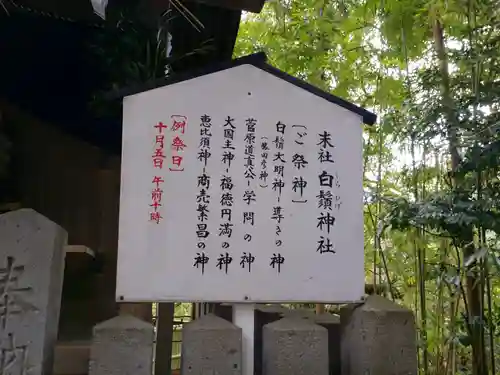 末社 白鬚神社
しらひげ
〔ご祭神〕
白鬚大明神－導きの神
（猿田彦神）
菅原道真公－学問の神
大国主神－福徳円満の神
恵比須神－商売繁昌の神
〔例祭日〕
十月五日 午前十時
奉納